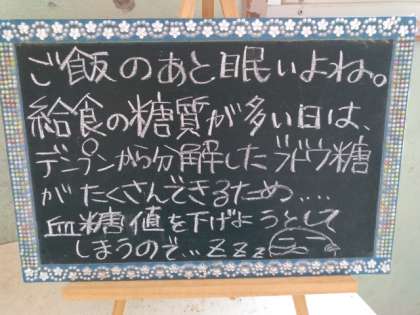 ご飯のあと眠いよね。
給食の糖質が多い日は、
デンプンから分解したブドウ糖
がたくさんできるため....
血糖値を下げようとして
しまうので...ZZZ